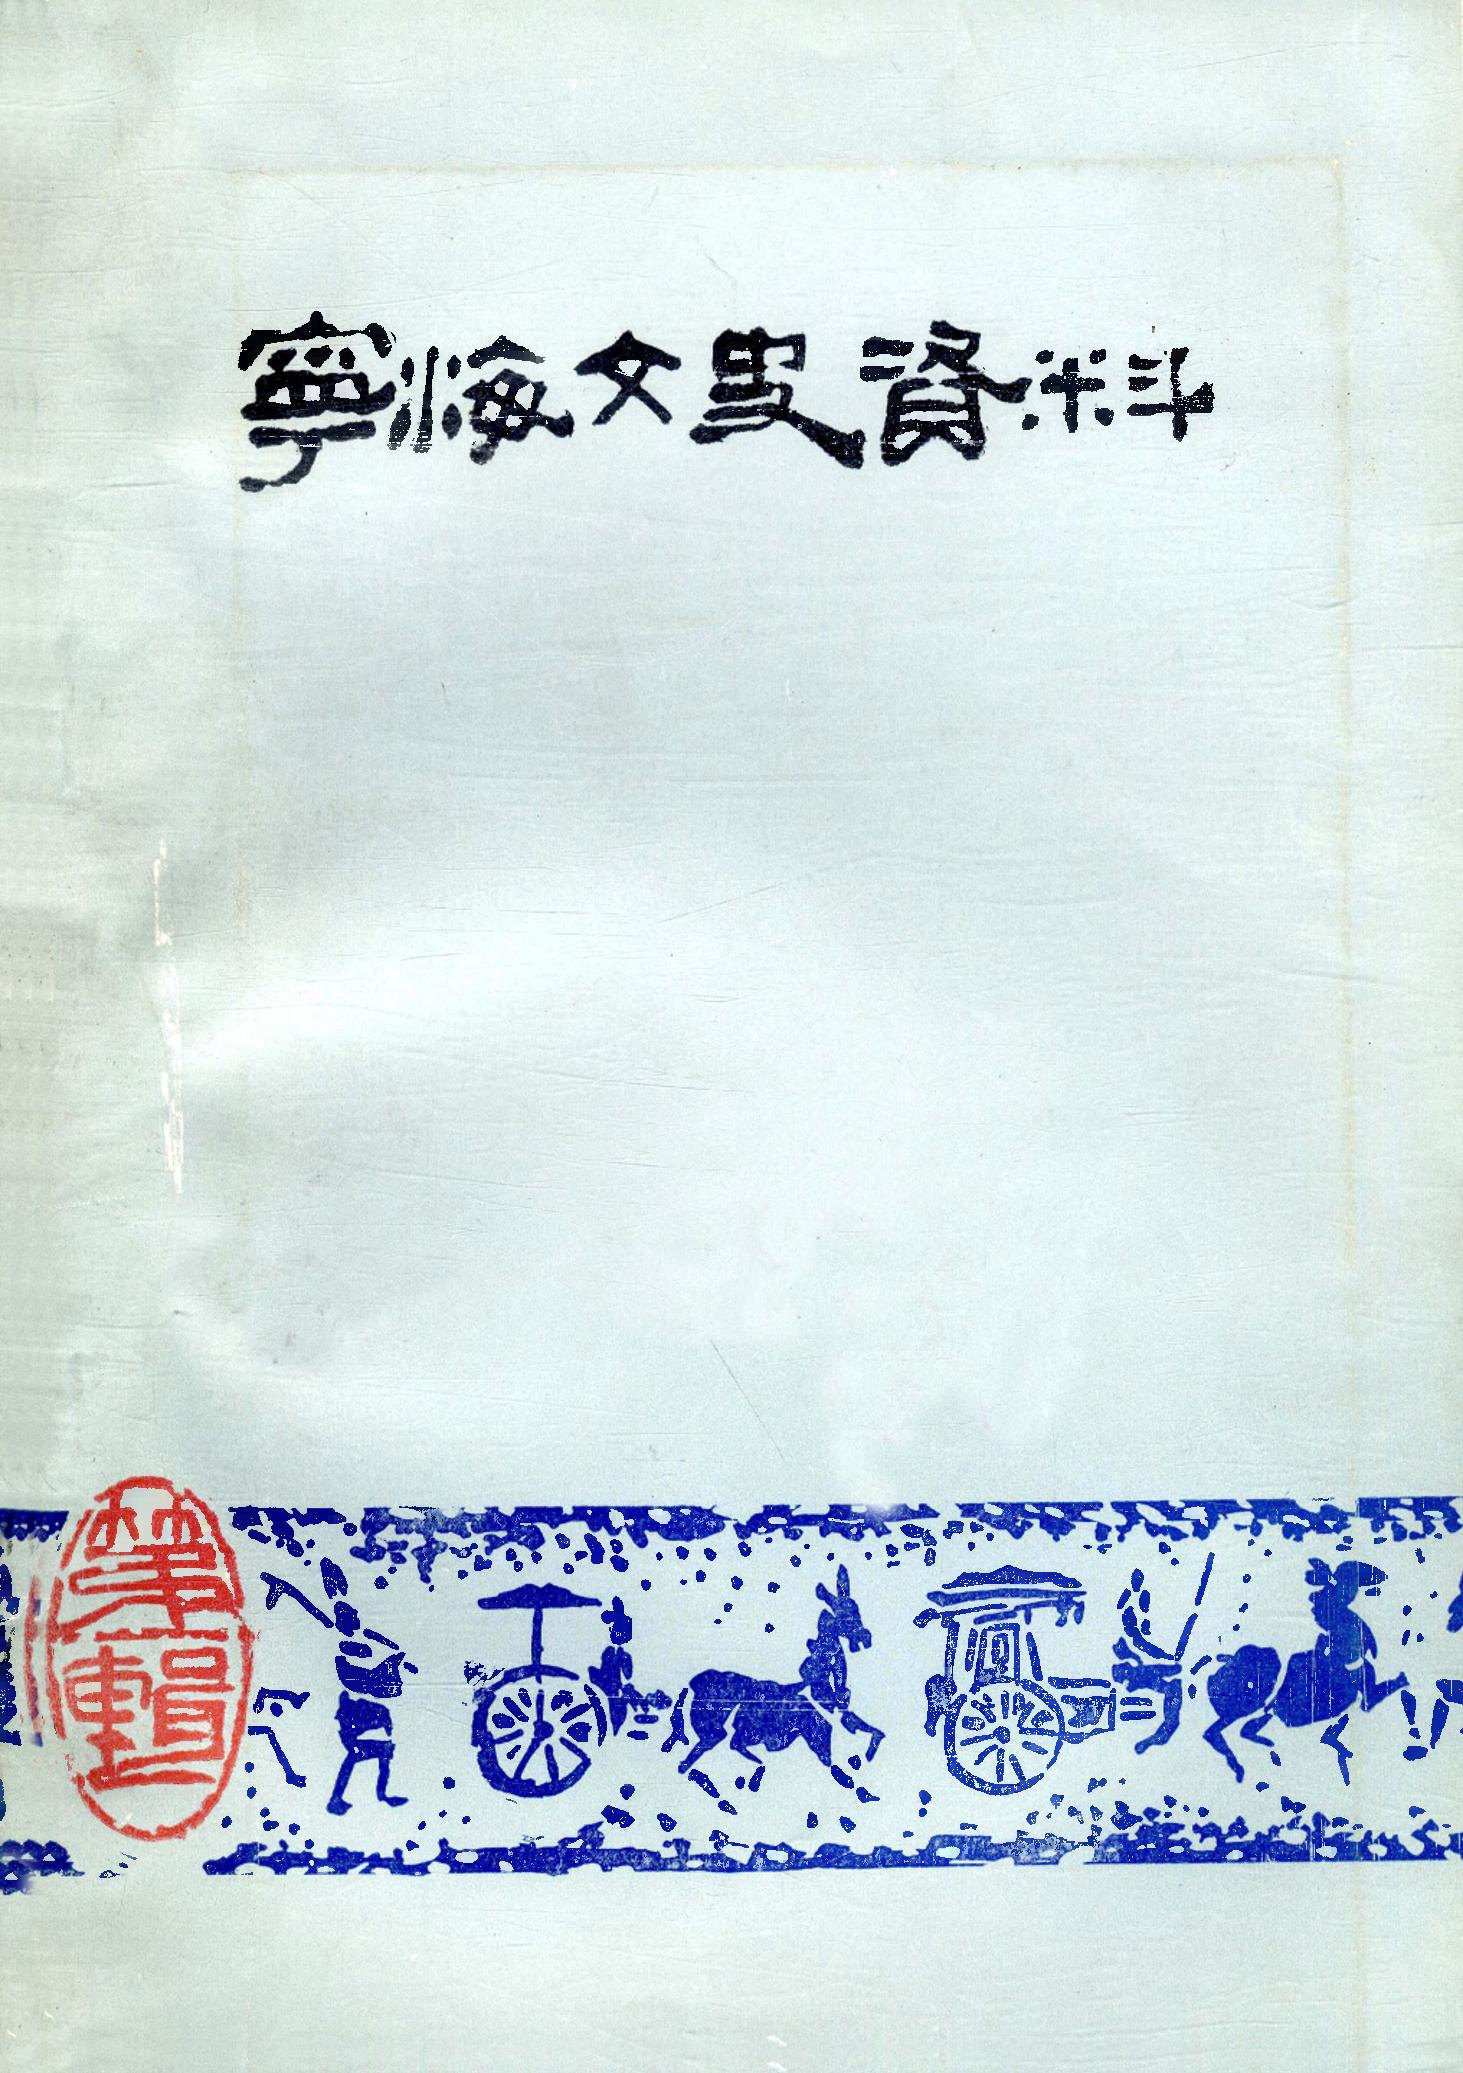 寧海文史資料
第一輯